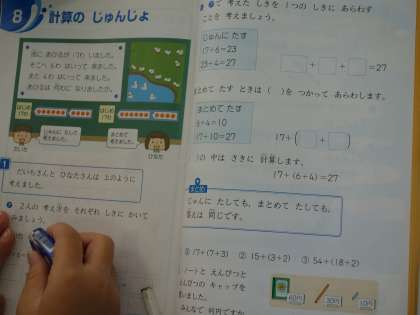 8 計算の じゅんじょ
池に あひるが 17わ いました。
そこへ 6わ はいって 来ました。
また 4わ はいって 来ました。
あひるは 何わに なりましたか。
はじめ
17わ
はじめ
17わ
じゅんに たして
考えました。
まとめて
考えました。
だいち
ひなた
1
だいちさんと ひなたさんは 上のように
考えました。
2人の 考え方を それぞれ しきに かいて
みましょう。
で 考えた しきを 1つの しきに あらわす
ことを 考えましょう。
じゅんに たす
17+6=23
23+4=27
+ + =27
まとめて たす ときは ( )を つかって あらわします。
まとめて たす
6+4=10
17+10=27
17+( + )
の 中は さきに 計算します。
17+(6+4)=27
まとめ
じゅんに たしても、まとめて たしても、
答えは 同じです。
① 17+(7+3) ② 15+(3+2) ③ 54+(18+2)
ノートと えんぴつと
えんぴつの キャップを
買いました。
みんなで 何円ですか。
60円
30円
10円